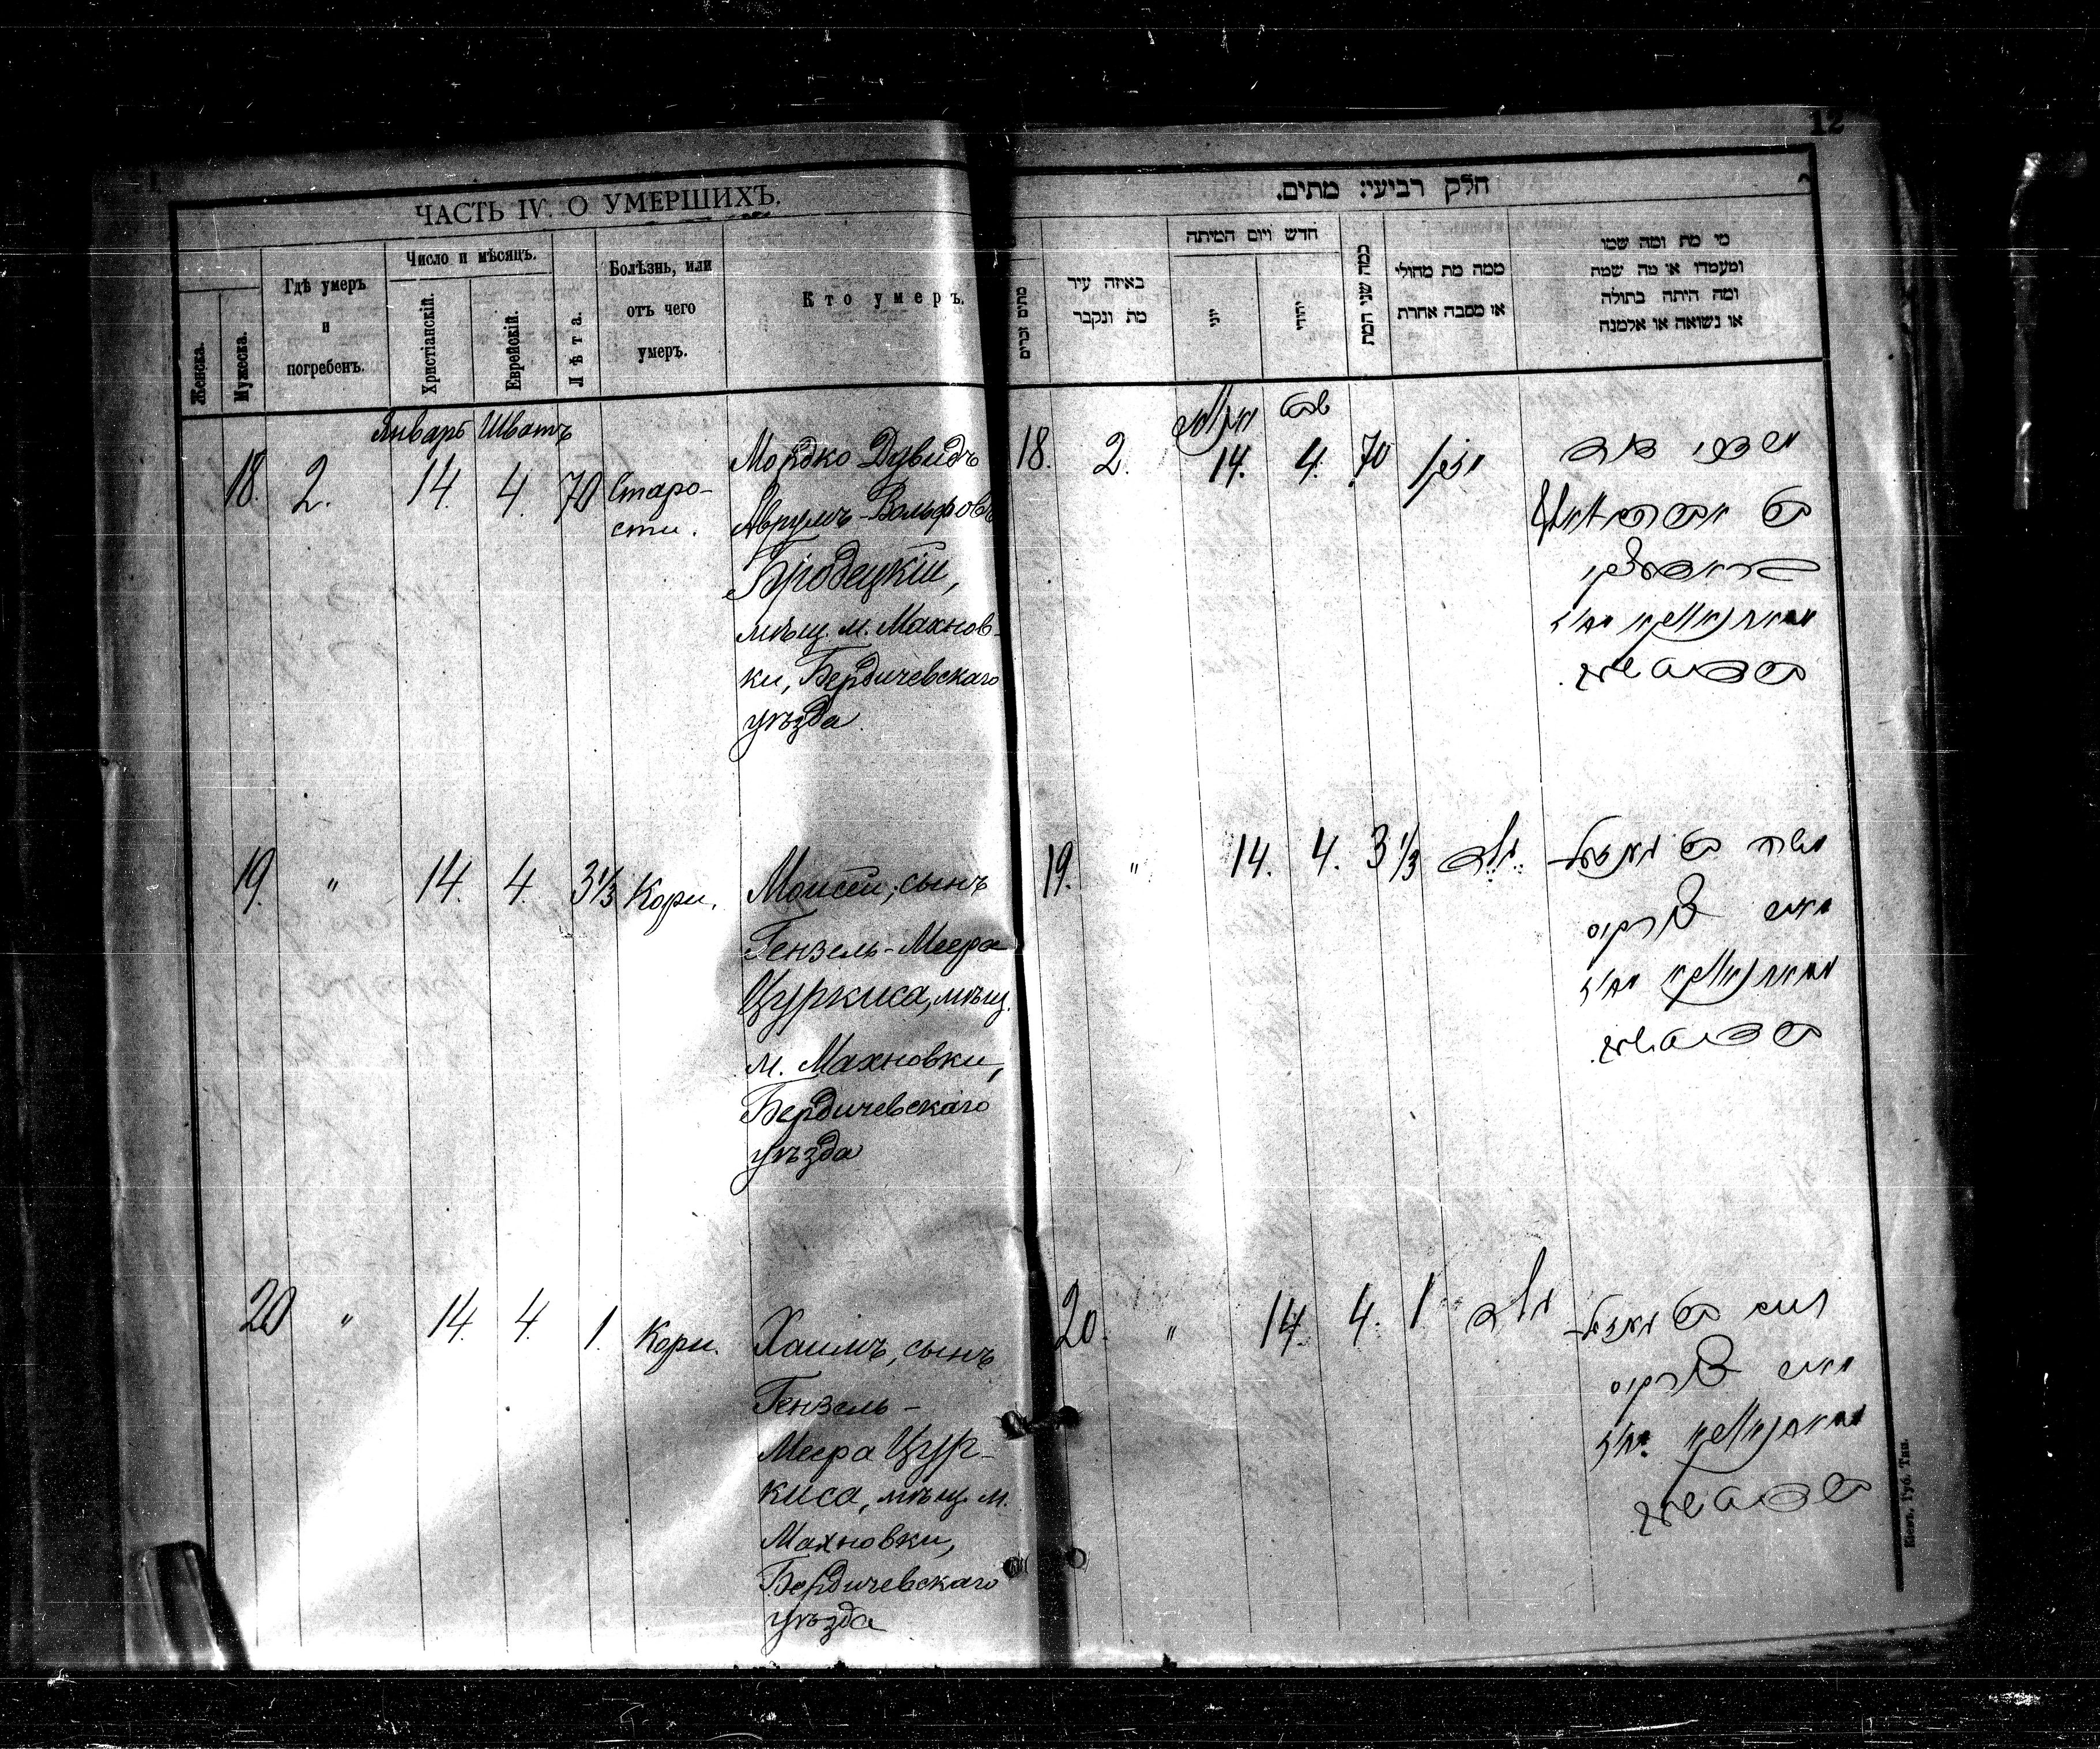 12
ЧАСТЬ IV. О УМЕРШИХЪ.
Женска.
Мужеска.
Гдѣ умеръ
и
погребенъ.
Число и мѣсяцъ.
Христіанскій.
Еврейскій.
Лѣта.
Болѣзнь, или
отъ чего
умеръ.
Кто умеръ.
Январь Шватъ
18. 2. 14. 4. 70 Старо-
сти.
Мордко Дувидъ
Аврумъ-Вольфовъ
Бродецкій,
мѣщ. м. Махнов-
ки, Бердичевскаго
уѣзда
19. " 14. 4. 3 1/3 Кори.
Моисей, сынъ
Гензель-Меера
Цуркиса, мѣщ.
м. Махновки,
Бердичевскаго
уѣзда
20 " 14. 4. 1. Кори.
Хаимъ, сынъ
Гензель-
Меера Цур-
киса, мѣщ. м.
Махновки,
Бердичевскаго
уѣзда
חלק רביעי: מתים.
מתים זכרים
באיזה עיר
מת ונקבר
חדש ויום המיתה
יוני
יהודי
כמה שני המת
ממה מת מחולי
או מסבה אחרת
מי מת ומה שמו
ומעמדו או מה שמה
ומה היתה בתולה
או נשואה או אלמנה
שבט
18. 2. 14. 4. 70 זקן
מרדכי דוד
19. " 14. 4. 3 1/3
משה בן
מאיר צורקיס
20. " 14. 4. 1
חיים בן
מאיר צורקיס
Кіевъ, Губ. Тип.